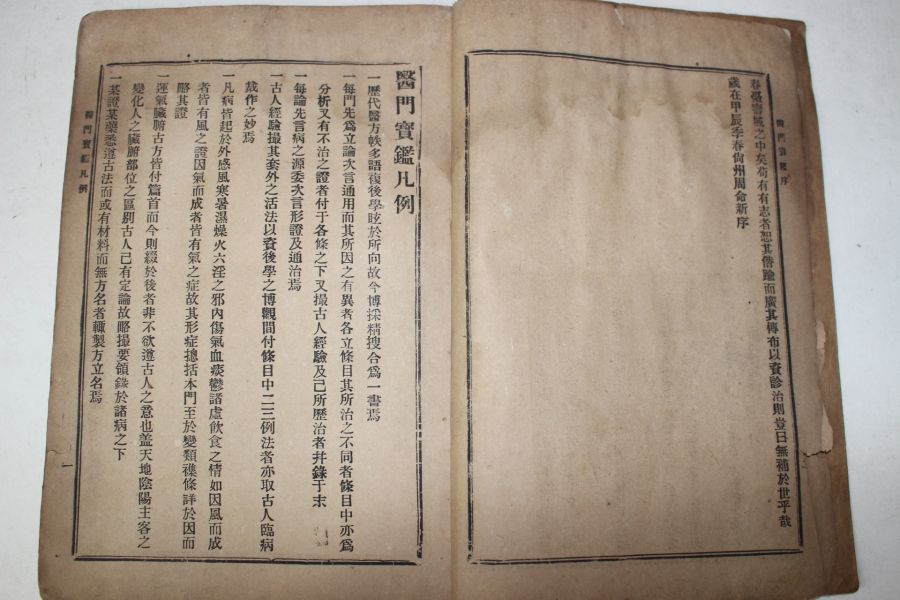 醫門寶鑑序
春臺壽域之中矣苟有有志者恕其僭踰而廣其傳布以資診治則豈曰無補於世乎哉
歲在甲辰季春尙州周命新序
醫門寶鑑凡例
一歷代醫方帙多語復後學眩於所向故今博採精搜合爲一書焉
一每門先爲立論次言通用而其所因之有異者各立條目其所治之不同者條目中亦爲
分析又有不治之證者付于各條之下又撮古人經驗及己所歷治者幷錄于末
一每論先言病之源委次言形證及通治焉
一古人經驗撮其套外之活法以資後學之博觀間付條目中二三例法者亦取古人臨病
裁作之妙焉
一凡病皆起於外感風寒暑濕燥火六淫之邪內傷氣血痰鬱諸虛飮食之情如因風而成
者皆有風之證因氣而成者皆有氣之症故其形症摠括本門至於變類襍條詳於因而
略其證
一運氣臟腑古方皆付篇首而今則綴於後者非不欲遵古人之意也盖天地陰陽主客之
變化人之臟腑部位之區別古人已有定論故略撮要領錄於諸病之下
一某證某藥悉遵古法而或有材料而無方名者輒製方立名焉
醫門寶鑑凡例
一